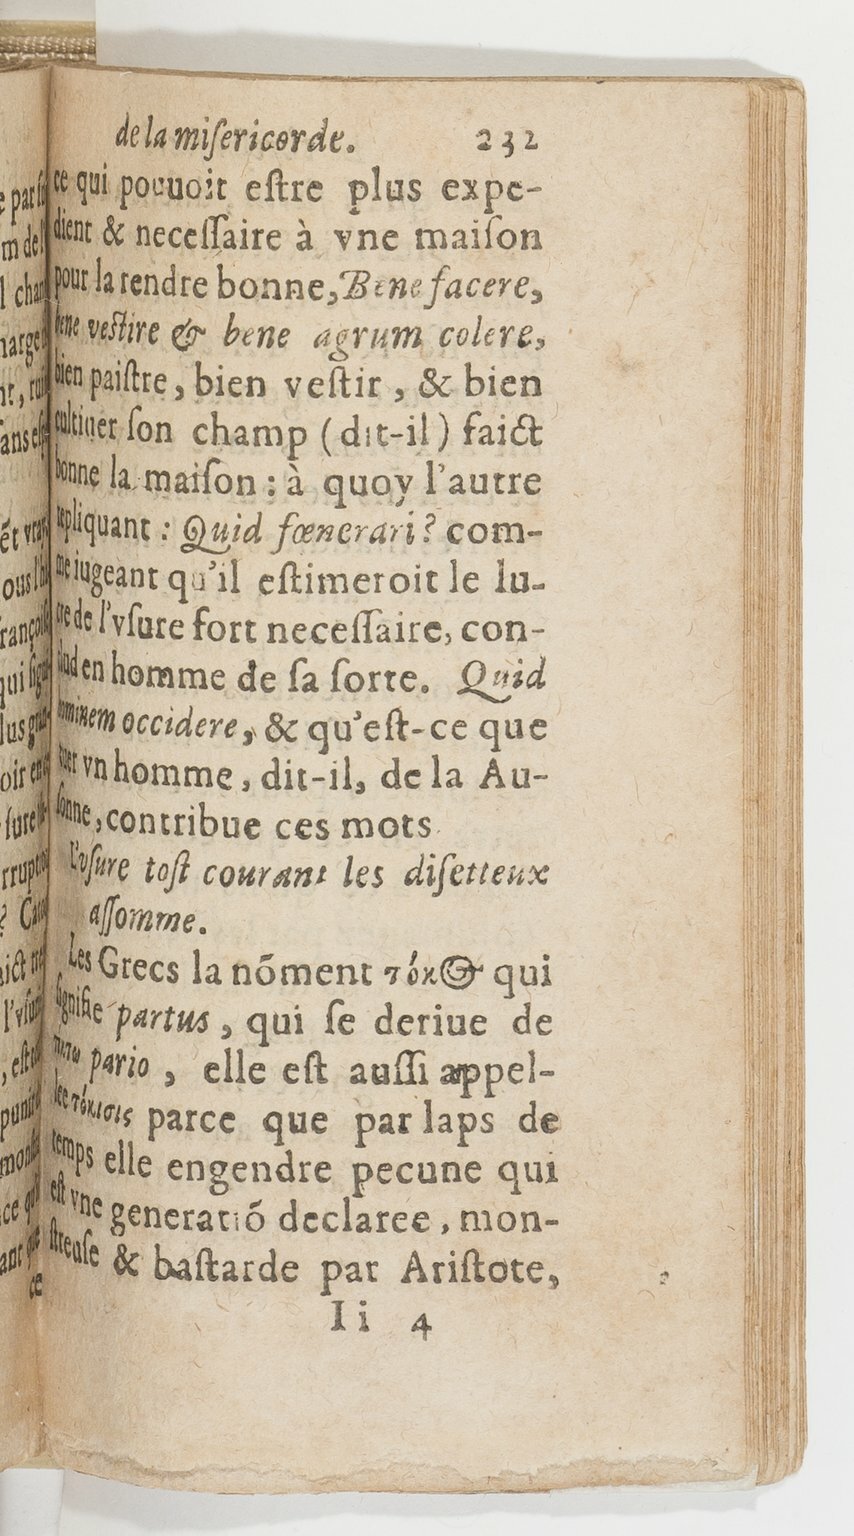 de la miſericorde. 232
ce qui pouuoit eſtre plus expe-
dient & neceſſaire à vne maiſon
pour la rendre bonne, Bene facere,
bene veſtire & bene agrum colere,
bien paiſtre, bien veſtir, & bien
cultiuer ſon champ (dit-il) faict
bonne la maiſon: à quoy l'autre
repliquant: Quid fœnerari? com-
me iugeant qu'il eſtimeroit le lu-
cre de l'vſure fort neceſſaire, con-
clud en homme de ſa ſorte. Quid
hominem occidere, & qu'eſt-ce que
tuer vn homme, dit-il, de la Au-
ſonne, contribue ces mots
L'vſure toſt courant les diſetteux
aſſomme.
Les Grecs la nõment τόκος qui
ſignifie partus, qui ſe deriue de
pario, elle eſt auſſi appel-
lee τόκισις parce que par laps de
temps elle engendre pecune qui
eſt vne generatiõ declaree, mon-
ſtreuſe & baſtarde par Ariſtote,
Ii 4